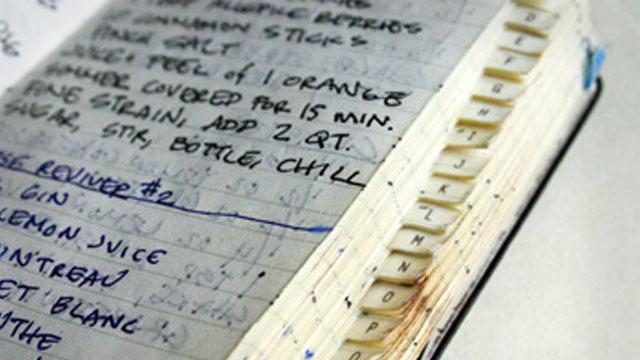 ALLSPICE BERRIES
CINNAMON STICKS
PINCH SALT
JUICE + PEEL of 1 ORANGE
SIMMER COVERED FOR 15 MIN.
FINE STRAIN, ADD 2 QT.
SUGAR, STIR, BOTTLE, CHILL
REVIVER #2
GIN
LEMON JUICE
BLANC
D
E
F
G
H
I
J
K
L
M
N
O
P